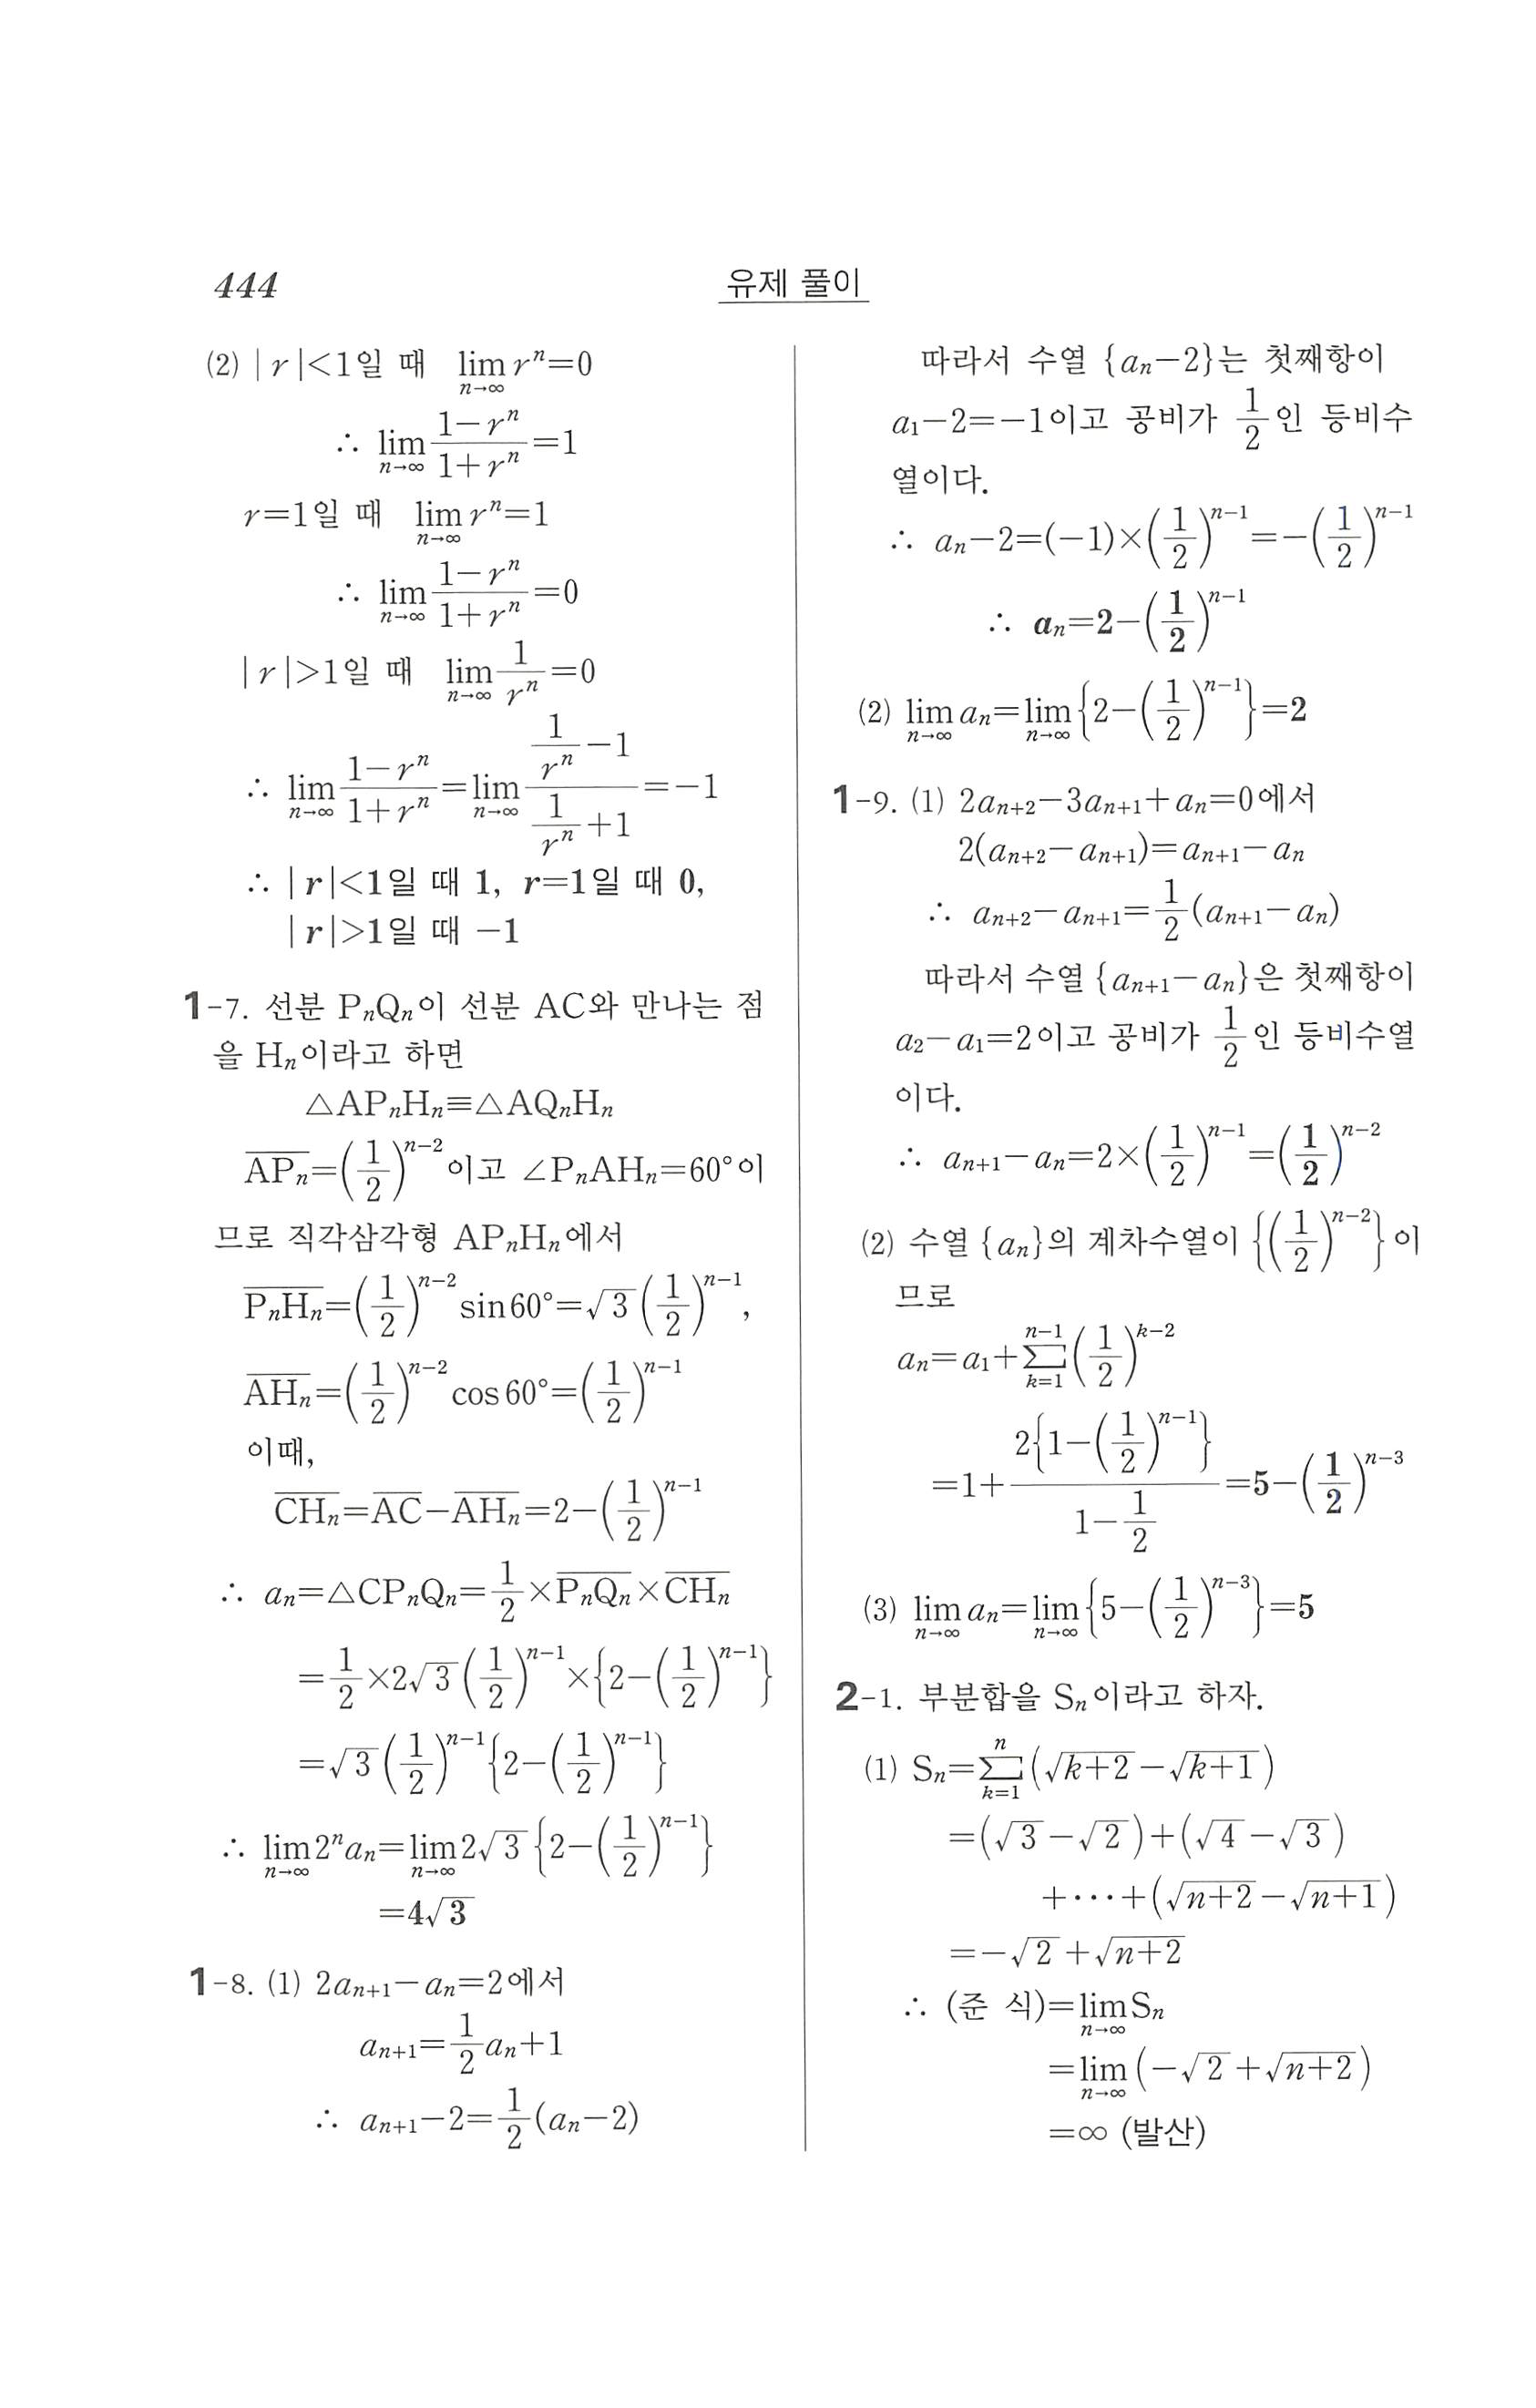 444
유제 풀이
(2) |r|<1일 때 lim_{n→∞} r^n=0
∴ lim_{n→∞} (1-r^n)/(1+r^n)=1
r=1일 때 lim_{n→∞} r^n=1
∴ lim_{n→∞} (1-r^n)/(1+r^n)=0
|r|>1일 때 lim_{n→∞} 1/r^n=0
∴ lim_{n→∞} (1-r^n)/(1+r^n)=lim_{n→∞} (1/r^n-1)/(1/r^n+1)=-1
∴ |r|<1일 때 1, r=1일 때 0,
|r|>1일 때 -1
1-7. 선분 P_nQ_n이 선분 AC와 만나는 점
을 H_n이라고 하면
△AP_nH_n≡△AQ_nH_n
\overline{AP_n}=(1/2)^{n-2}이고 ∠P_nAH_n=60°이
므로 직각삼각형 AP_nH_n에서
\overline{P_nH_n}=(1/2)^{n-2} sin60°=√3(1/2)^{n-1},
\overline{AH_n}=(1/2)^{n-2} cos60°=(1/2)^{n-1}
이때,
\overline{CH_n}=\overline{AC}-\overline{AH_n}=2-(1/2)^{n-1}
∴ a_n=△CP_nQ_n=1/2×\overline{P_nQ_n}×\overline{CH_n}
=1/2×2√3(1/2)^{n-1}×{2-(1/2)^{n-1}}
=√3(1/2)^{n-1}{2-(1/2)^{n-1}}
∴ lim_{n→∞} 2^n a_n=lim_{n→∞} 2√3{2-(1/2)^{n-1}}
=4√3
1-8. (1) 2a_{n+1}-a_n=2에서
a_{n+1}=1/2 a_n+1
∴ a_{n+1}-2=1/2(a_n-2)
따라서 수열 {a_n-2}는 첫째항이
a_1-2=-1이고 공비가 1/2인 등비수
열이다.
∴ a_n-2=(-1)×(1/2)^{n-1}=-(1/2)^{n-1}
∴ a_n=2-(1/2)^{n-1}
(2) lim_{n→∞} a_n=lim_{n→∞} {2-(1/2)^{n-1}}=2
1-9. (1) 2a_{n+2}-3a_{n+1}+a_n=0에서
2(a_{n+2}-a_{n+1})=a_{n+1}-a_n
∴ a_{n+2}-a_{n+1}=1/2(a_{n+1}-a_n)
따라서 수열 {a_{n+1}-a_n}은 첫째항이
a_2-a_1=2이고 공비가 1/2인 등비수열
이다.
∴ a_{n+1}-a_n=2×(1/2)^{n-1}=(1/2)^{n-2}
(2) 수열 {a_n}의 계차수열이 {(1/2)^{n-2}}이
므로
a_n=a_1+∑_{k=1}^{n-1}(1/2)^{k-2}
=1+2{1-(1/2)^{n-1}}/(1-1/2)=5-(1/2)^{n-3}
(3) lim_{n→∞} a_n=lim_{n→∞} {5-(1/2)^{n-3}}=5
2-1. 부분합을 S_n이라고 하자.
(1) S_n=∑_{k=1}^{n}(√(k+2)-√(k+1))
=(√3-√2)+(√4-√3)
+⋯+(√(n+2)-√(n+1))
=-√2+√(n+2)
∴ (준 식)=lim_{n→∞} S_n
=lim_{n→∞}(-√2+√(n+2))
=∞ (발산)